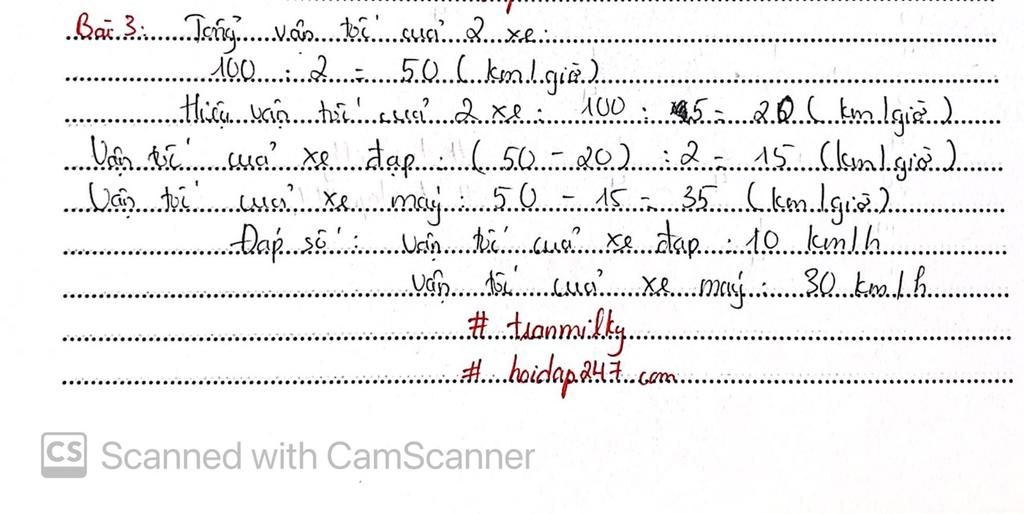 Bài 3: Tổng vận tốc của 2 xe:
100 : 2 = 50 (km/giờ)
Hiệu vận tốc của 2 xe: 100 : 5 = 20 (km/giờ)
Vận tốc của xe đạp: (50 - 20) : 2 = 15 (km/giờ)
Vận tốc của xe máy: 50 - 15 = 35 (km/giờ)
Đáp số: vận tốc của xe đạp: 10 km/h
vận tốc của xe máy: 30 km/h
# tranmilky
# hoidap247.com
CS Scanned with CamScanner